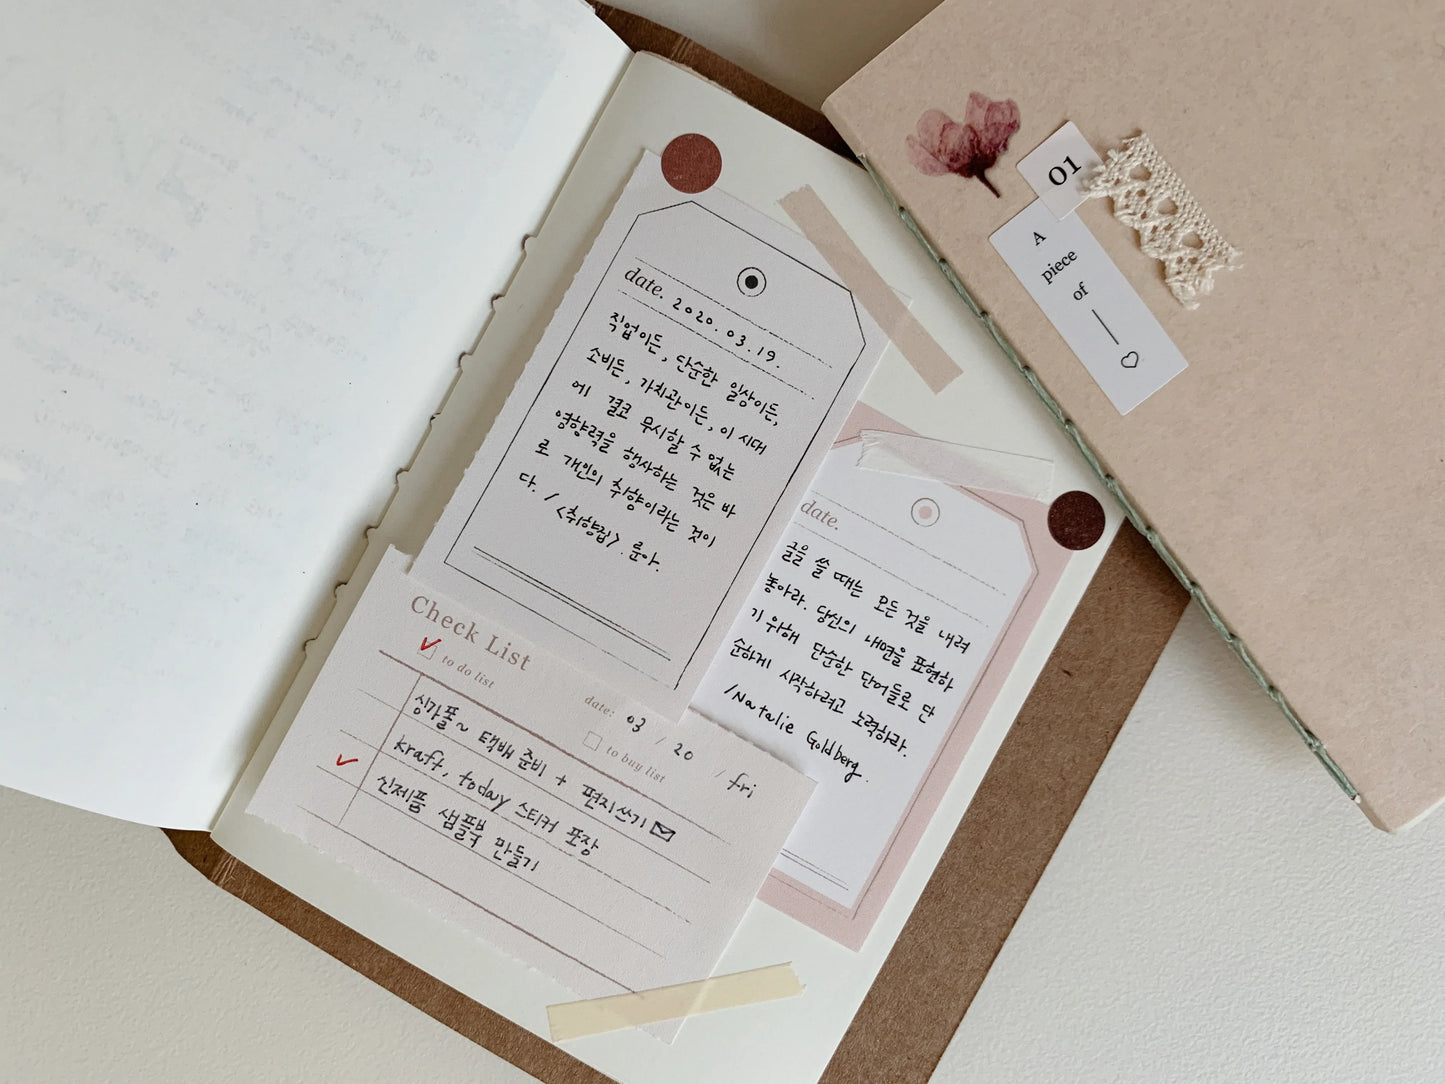 date. 2020. 03. 19.
직업이든, 단순한 일상이든,
소비든, 가치관이든, 이 시대
에 결코 무시할 수 없는
영향력을 행사하는 것은 바
로 개인의 취향이라는 것이
다. /
<취향집>. 룬아.
date.
글을 쓸 때는 모든 것을 내려
놓아라. 당신의 내면을 표현하
기 위해 단순한 단어들로 단
순하게 시작하려고 노력하라.
/Natalie Goldberg.
Check List
to do list
date: 03 / 20 / fri
to buy list
싱가폴~ 택배 준비 + 편지쓰기
kraft, today 스티커 포장
신제품 샘플북 만들기
01
A
piece
of